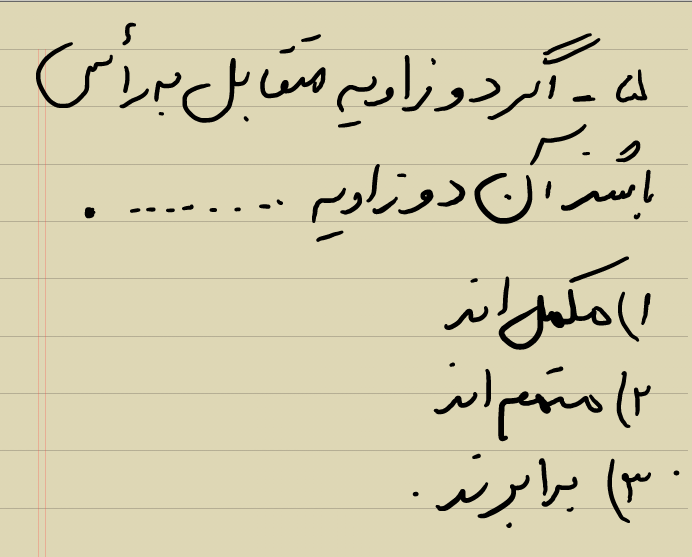 ۵ - اگر دو زاویه متقابل به رأس
باشند آن دو زاویه ........ .
۱) مکمل اند
۲) متمم اند
۳) برابرند .